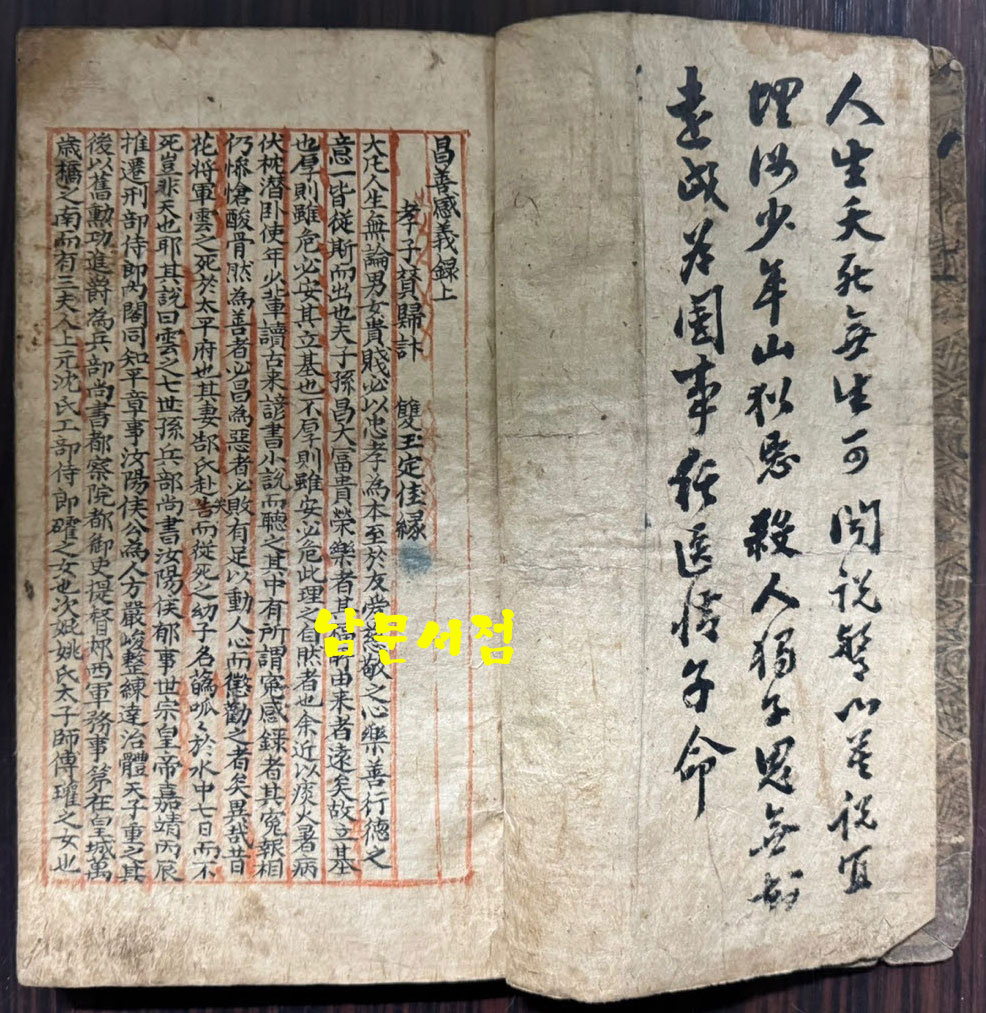 人生夭死無生可 說 說宜
埋沒少年山似 殺人獨子思無
國事 情子命
昌善感義錄上
孝子賛歸計 雙玉定佳緣
大凡人生無論男女貴賤必以忠孝為本至於友爱慈敬之心樂善行德之
意一皆從斯而出也夫子孫昌大富貴榮樂者其福所由来者遠矣故立基
也厚則雖危必安其立基也不厚則雖安必危此理之自然者也余近以痰火暑病
伏枕潜卧使年少軰讀古来諺書小說而聽之其中有所謂寃感録者其寃報相
仍惨愴酸骨然為善者必昌為惡者必敗有足以動人心而懲勸之者矣異哉昔
花將軍雲之死於太平府也其妻郜氏赴告而從死之幼子名呱々於水中七日而不
死豈非天也耶其說曰雲之七世孫兵部尚書汝陽侯郁事世宗皇帝嘉靖丙辰
推遷刑部侍郎內閣同知平章事汝陽侯公為人方嚴峻整練達治體天子重之其
後以舊勳功進爵為兵部尚書都察院都御史提督郊西軍務事第在皇城萬
歲橋之南而有三夫人上元沈氏工部侍郎之女也次姚氏太子師傅瓘之女也
남문서점